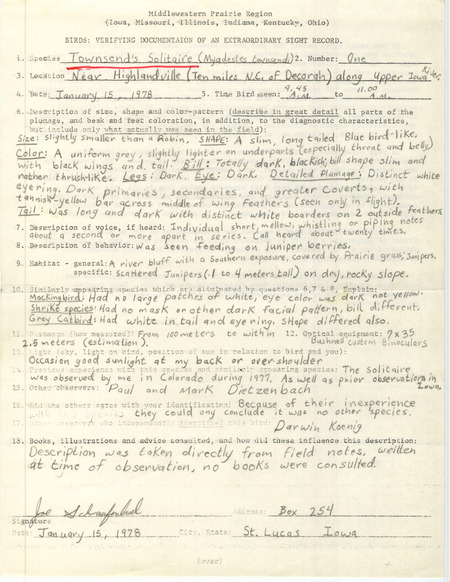 Middlewestern Prairie Region
(Iowa, Missouri, Illinois, Indiana, Kentucky, Ohio)
BIRDS: VERIFYING DOCUMENTAION OF AN EXTRAORDINARY SIGHT RECORD.
1. Species Townsend's Solitaire (Myadestes townsendi) 2. Number: One
3. Location Near Highlandville (Ten miles N.E. of Decorah) along Upper Iowa River.
4. Date: January 15, 1978 5. Time Bird seen: 9,45 A.M. to 11.00 A.M.
6. Description of size, shape and color-pattern (describe in great detail all parts of the
plumage, and beak and feet coloration, in addition to the diagnostic characteristics,
but include only what actually was seen in the field):
Size: slightly smaller than a Robin, SHAPE: A slim, long tailed Bluebird-like.
Color: A uniform grey, slightly lighter on underparts (especially throat and belly)
with black wings and tail. Bill: Totally dark, blackish, bill shape slim and
rather thrushlike. Legs: Dark. Eye: Dark. Detailed Plumage: Distinct white
eyering. Dark primaries, secondaries, and greater coverts, with
tannish-yellow bar across middle of wing feathers (seen only in flight).
Tail: Was long and dark with distinct white boarders on 2 outside feathers
7. Description of voice, if heard: Individual short, mellow, whistling or piping notes
about a second or more apart in series. Call heard about twenty times.
8. Description of behavior: Was seen feeding on Juniper berries.
9. Habitat - general: A river bluff with a Southern exposure, covered by Prairie grass, Junipers.
specific: Scattered Junipers (.1 to 4 meters tall) on dry, rocky slope.
10. Similarly appearing species which are eliminated by questions 6, 7 & 8, Explain:
Mockingbird: Had no large patches of white, eye color was dark not yellow.
Shrike species: Had no mask or other dark facial pattern, bill different.
Grey Catbird: Had white in tail and eyering. Shape differed also.
11. Distance (how measured)? From 100 meters to within 12. Optical equipment: 7x35
2.5 meters (estimation). Bushnell custom Binoculars
13. Light (sky, light on bird, position of sun in relation to bird and you):
Occasion good sunlight at my back or over shoulder
14. Previous experience with this species and similarly appearing species: The Solitaire
was observed by me in Colorado during 1977. As well as prior observations in Iowa.
15. Other observers: Paul and Mark Dietzenbach
16. Did the others agree with your identification? Because of their inexperience
with species they could only conclude it was no other species.
17. Other observers who independently identified this bird: Darwin Koenig
18. Books, illustrations and advice consulted, and how did these influence this description:
Description was taken directly from field notes, written
at time of observation, no books were consulted.
Joe Schaufenbuel Address: Box 254
Signature
Date: January 15, 1978 City, State: St. Lucas Iowa
(over)